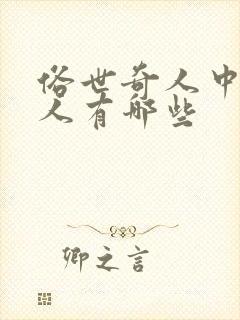 俗世奇人中
人有哪些
卿之言